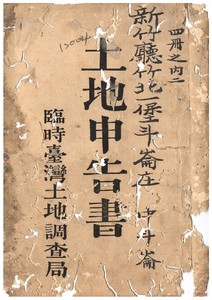 四冊之内二
新竹廳竹北一堡斗崙庄 中斗崙
土地申告書
臨時臺灣土地調查局